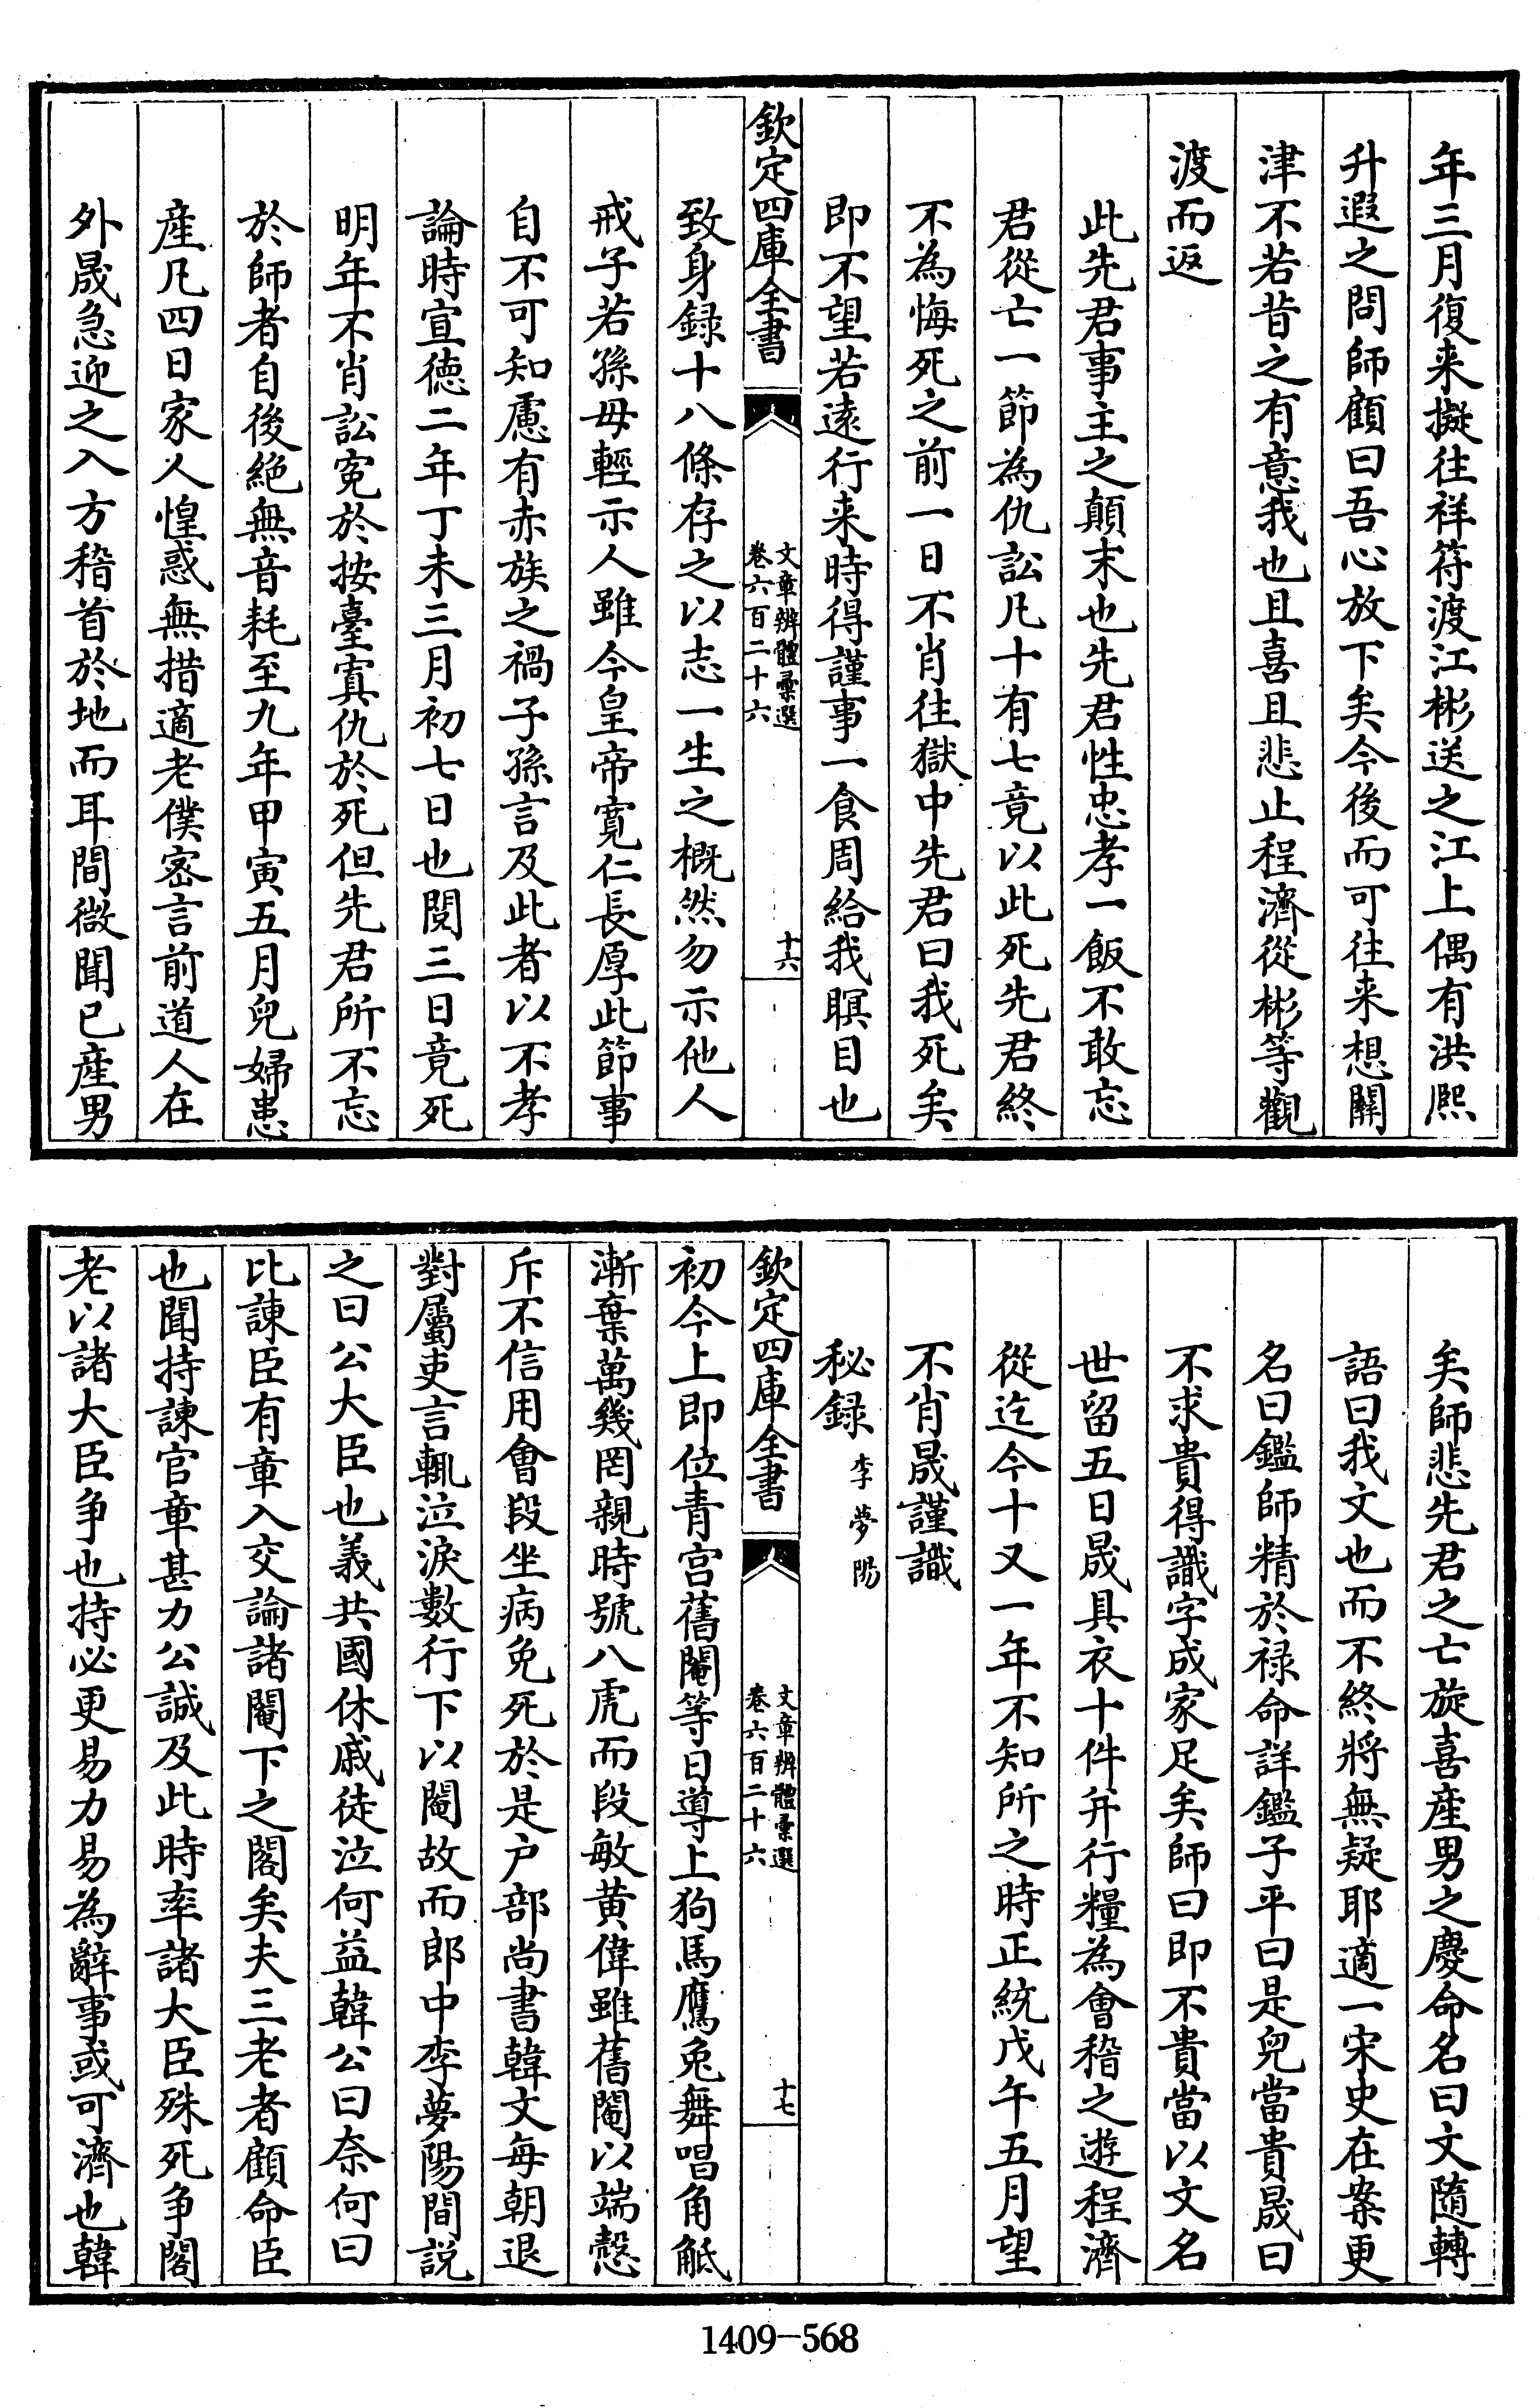 年三月復来擬往祥符渡江彬送之江上偶有洪熈
升遐之問師顧曰吾心放下矣今後而可往来想關
津不若昔之有意我也且喜且悲止程濟從彬等觀
渡而返
此先君事主之顛末也先君性忠孝一飯不敢忘
君從亡一節為仇訟凡十有七竟以此死先君終
不為悔死之前一日不肖往獄中先君曰我死矣
即不望若逺行来時得謹事一食周給我瞑目也
欽定四庫全書
文章辨體彚選
卷六百二十六
十六
致身録十八條存之以志一生之概然勿示他人
戒子若孫毋輕示人雖今皇帝寛仁長厚此節事
自不可知慮有赤族之禍子孫言及此者以不孝
論時宣徳二年丁未三月初七日也閲三日竟死
明年不肖訟寃於按臺寘仇於死但先君所不忘
於師者自後絶無音耗至九年甲寅五月兒婦患
産凡四日家人惶惑無措適老僕宻言前道人在
外晟急迎之入方稽首於地而耳間微聞已産男
矣師悲先君之亡旋喜産男之慶命名曰文隨轉
語曰我文也而不終將無疑耶適一宋史在案更
名曰鑑師精於禄命詳鑑子平曰是兒當貴晟曰
不求貴得識字成家足矣師曰即不貴當以文名
世留五日晟具衣十件并行糧為會稽之遊程濟
從迄今十又一年不知所之時正統戊午五月望
不肖晟謹識
秘録 李夢陽
欽定四庫全書
文章辨體彚選
卷六百二十六
十七
初今上即位青宫舊閹等日導上狗馬鷹兔舞唱角觝
漸棄萬幾罔親時號八虎而段敏黄偉雖舊閹以端慤
斥不信用會段坐病免死於是户部尚書韓文每朝退
對屬吏言輒泣淚數行下以閹故而郎中李夢陽間説
之曰公大臣也義共國休戚徒泣何益韓公曰奈何曰
比諫臣有章入交論諸閹下之閣矣夫三老者顧命臣
也聞持諫官章甚力公誠及此時率諸大臣殊死争閣
老以諸大臣争也持必更易力易為辭事或可濟也韓
1409-568